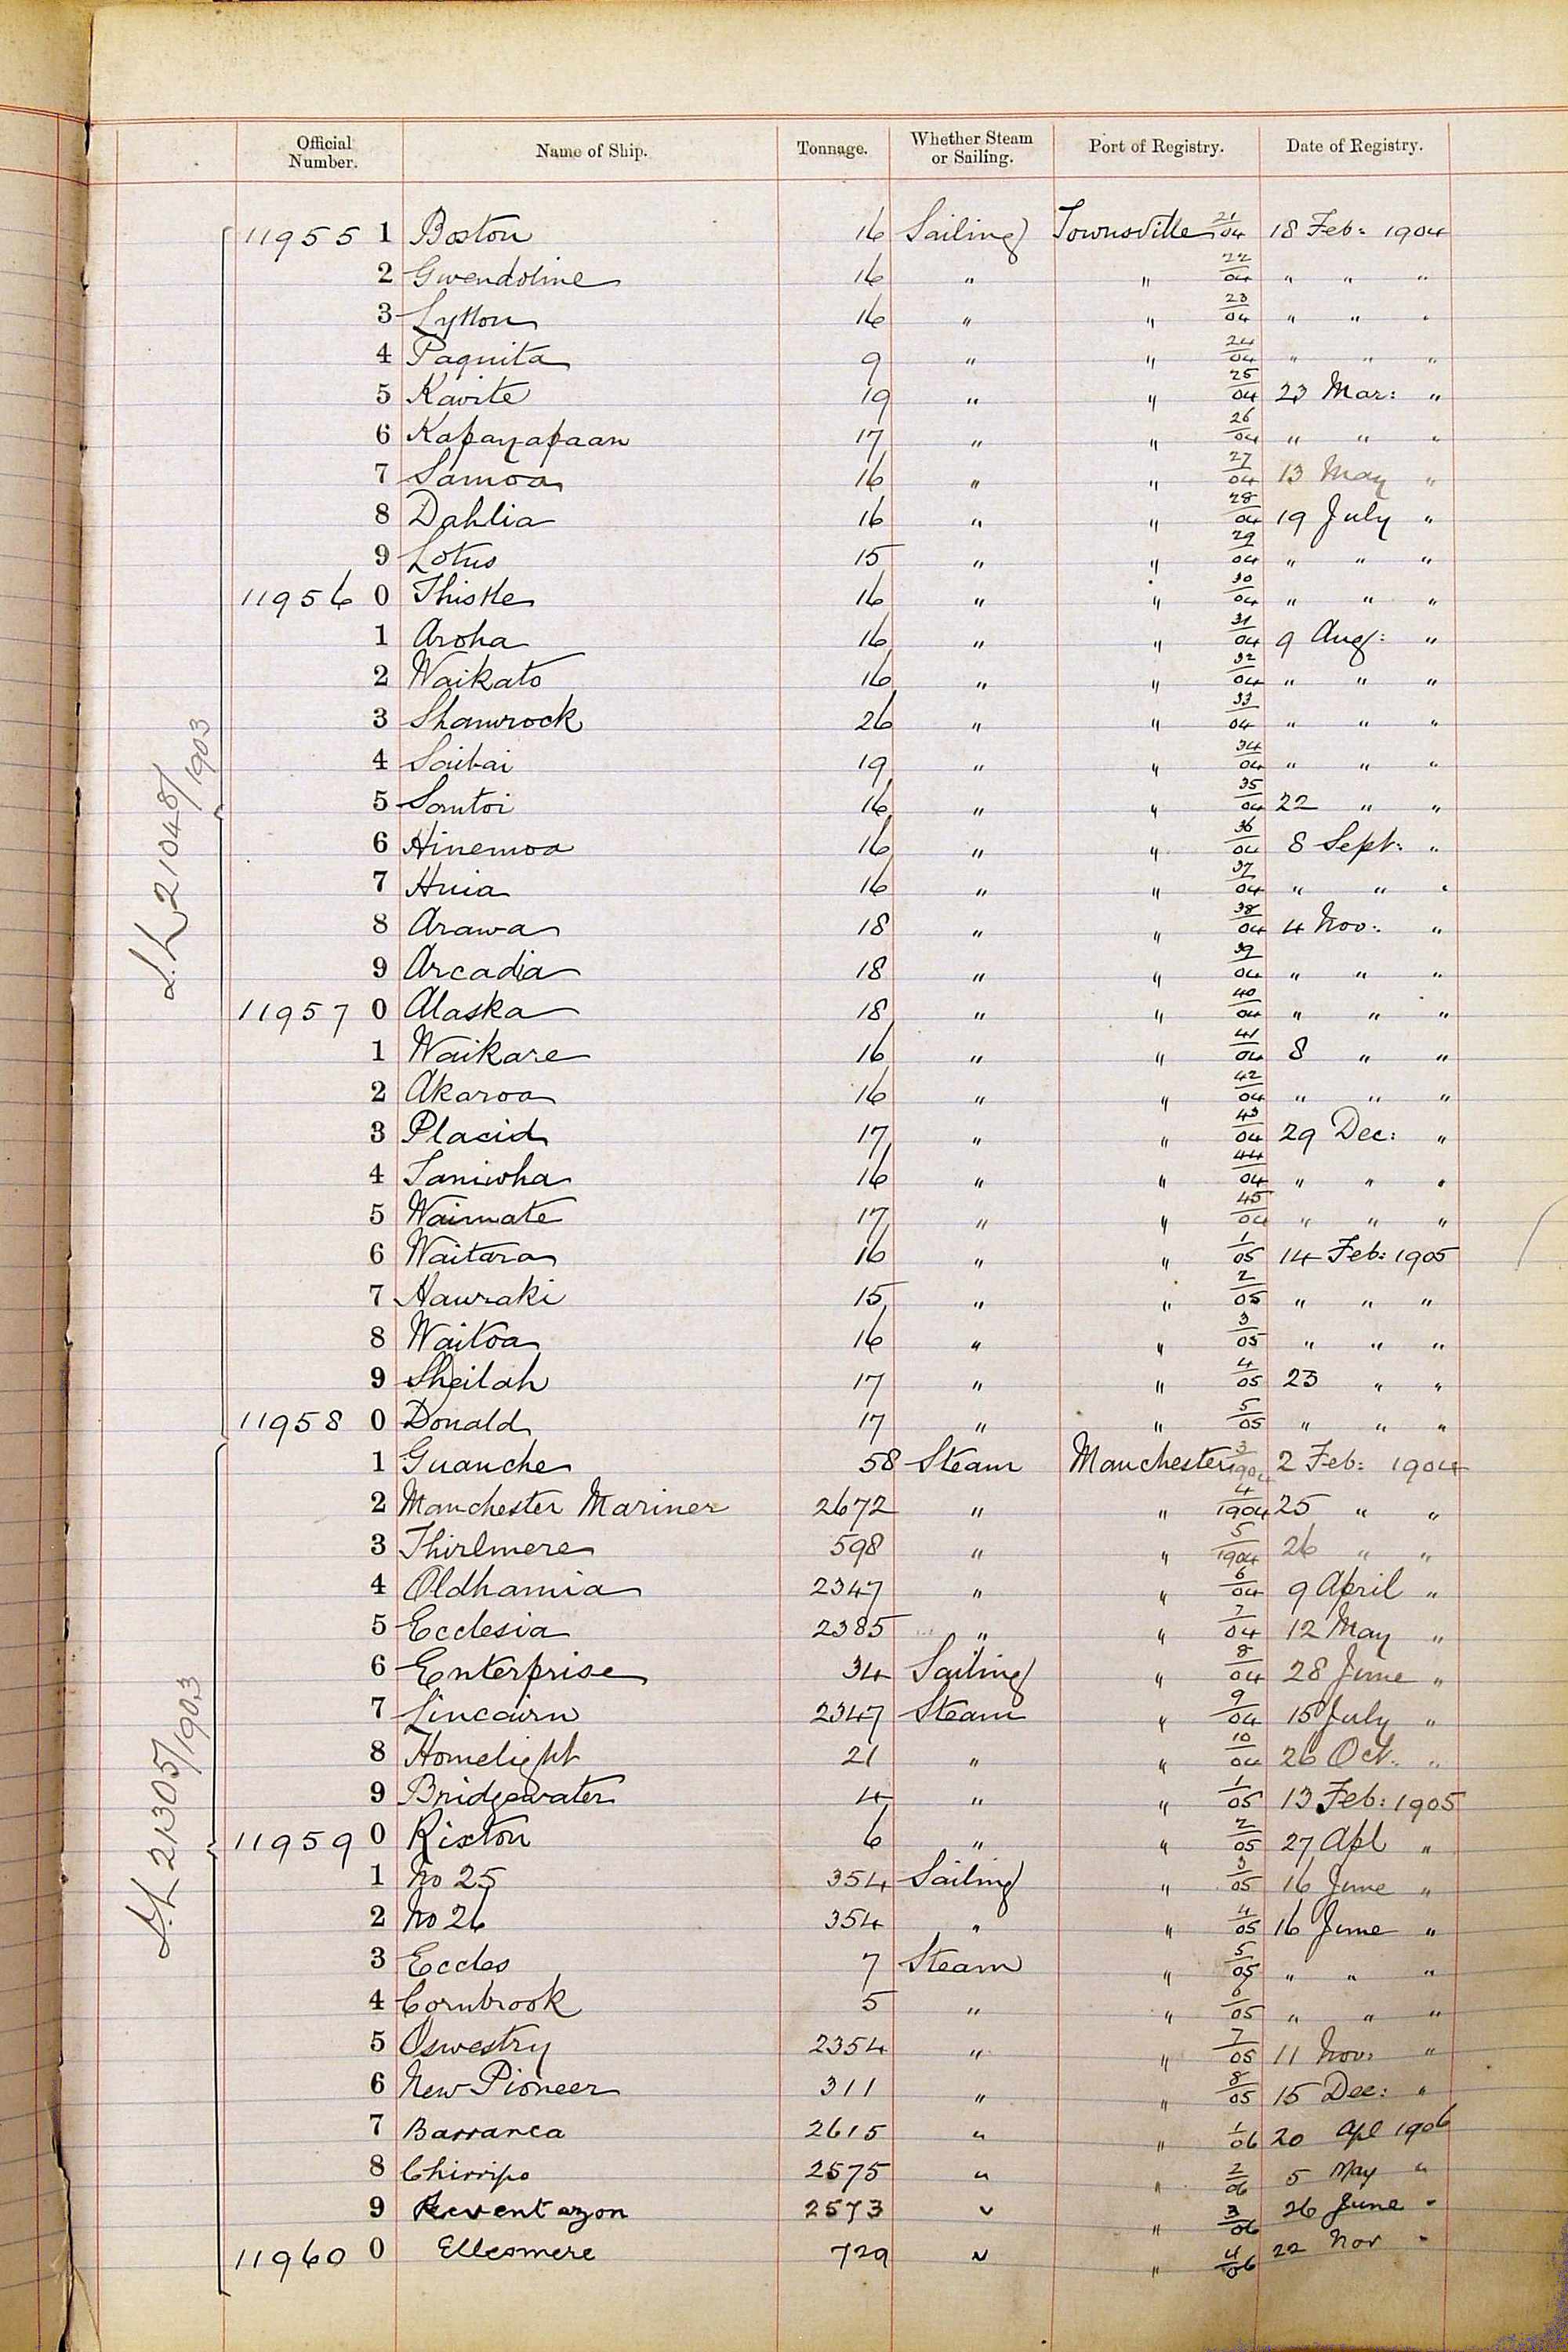 Official Number. Name of Ship. Tonnage. Whether Steam or Sailing. Port of Registry. Date of Registry.
11955 1 Boston 16 Sailing Townsville 21/04 18 Feb: 1904
2 Gwendoline 16 " " 22/04 " " "
3 Lytton 16 " " 23/04 " " "
4 Paquita 9 " " 24/04 " " "
5 Kavite 19 " " 25/04 23 Mar: "
6 Kapanapaan 17 " " 26/04 " " "
7 Samoa 16 " " 27/04 13 May "
8 Dahlia 16 " " 28/04 19 July "
9 Lotus 15 " " 29/04 " " "
11956 0 Thistle 16 " " 30/04 " " "
1 Aroha 16 " " 31/04 9 Aug: "
2 Waikato 16 " " 32/04 " " "
3 Shamrock 26 " " 33/04 " " "
4 Saibai 19 " " 34/04 " " "
5 Santoi 16 " " 35/04 22 " "
6 Hinemoa 16 " " 36/04 8 Sept: "
7 Huia 16 " " 37/04 " " "
8 Arawa 18 " " 38/04 4 Nov: "
9 Arcadia 18 " " 39/04 " " "
11957 0 Alaska 18 " " 40/04 " " "
1 Waikare 16 " " 41/04 8 " "
2 Akaroa 16 " " 42/04 " " "
3 Placid 17 " " 43/04 29 Dec: "
4 Taniwha 16 " " 44/04 " " "
5 Waimate 17 " " 45/04 " " "
6 Waitara 16 " " 1/05 14 Feb: 1905
7 Hauraki 15 " " 2/05 " " "
8 Waitoa 16 " " 3/05 " " "
9 Sheilah 17 " " 4/05 23 " "
11958 0 Donald 17 " " 5/05 " " "
S.L 21048/1903
1 Guanche 58 Steam Manchester 3/1904 2 Feb: 1904
2 Manchester Mariner 2672 " " 4/1904 25 " "
3 Thirlmere 598 " " 5/1904 26 " "
4 Oldhamia 2347 " " 6/04 9 April "
5 Ecclesia 2385 " " 7/04 12 May "
6 Enterprise 34 Sailing " 8/04 28 June "
7 Lincairn 2347 Steam " 9/04 15 July "
8 Homelight 21 " " 10/04 26 Oct: "
9 Bridgewater 4 " " 1/05 13 Feb: 1905
11959 0 Rixton 6 " " 2/05 27 Apl "
1 No 25 354 Sailing " 3/05 16 June "
2 No 26 354 " " 4/05 16 June "
3 Eccles 7 Steam " 5/05 " " "
4 Cornbrook 5 " " 6/05 " " "
5 Oswestry 2354 " " 7/05 11 Nov: "
6 New Pioneer 311 " " 8/05 15 Dec: "
7 Barranca 2615 " " 1/06 20 Apl 1906
8 Chirripo 2575 " " 2/06 5 May "
9 Reventazon 2573 " " 3/06 26 June "
11960 0 Ellesmere 729 " " 4/06 22 Nov "
S.L 21305/1903